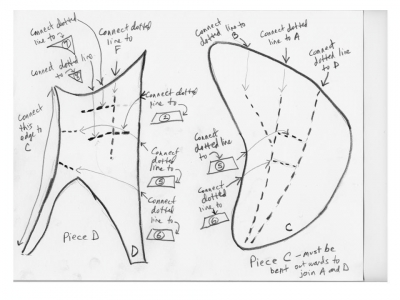 Connect dotted
line to
7
Connect dotted line
to
Connect
dotted
line to
F
Connect
this
edge to
C
Connect dotted
line to
2
Connect
dotted
line to
5
Connect
dotted
line to
6
Piece D
D
Connect
dotted line to
B
Connect
dotted
line to A
Connect
dotted line
to D
Connect
dotted line
to
5
Connect
dotted
line to
6
C
Piece C - must be
bent outwards to
join A and D